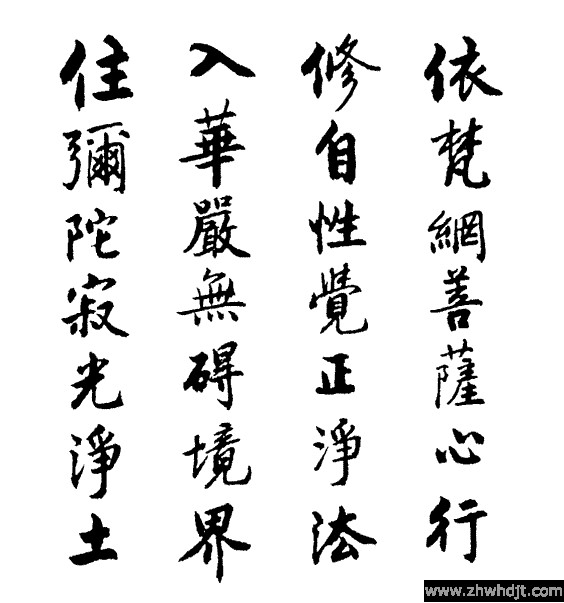 依梵網菩薩心行
修自性覺正淨法
入華嚴無碍境界
住彌陀寂光淨土
www.zhwhdjt.com